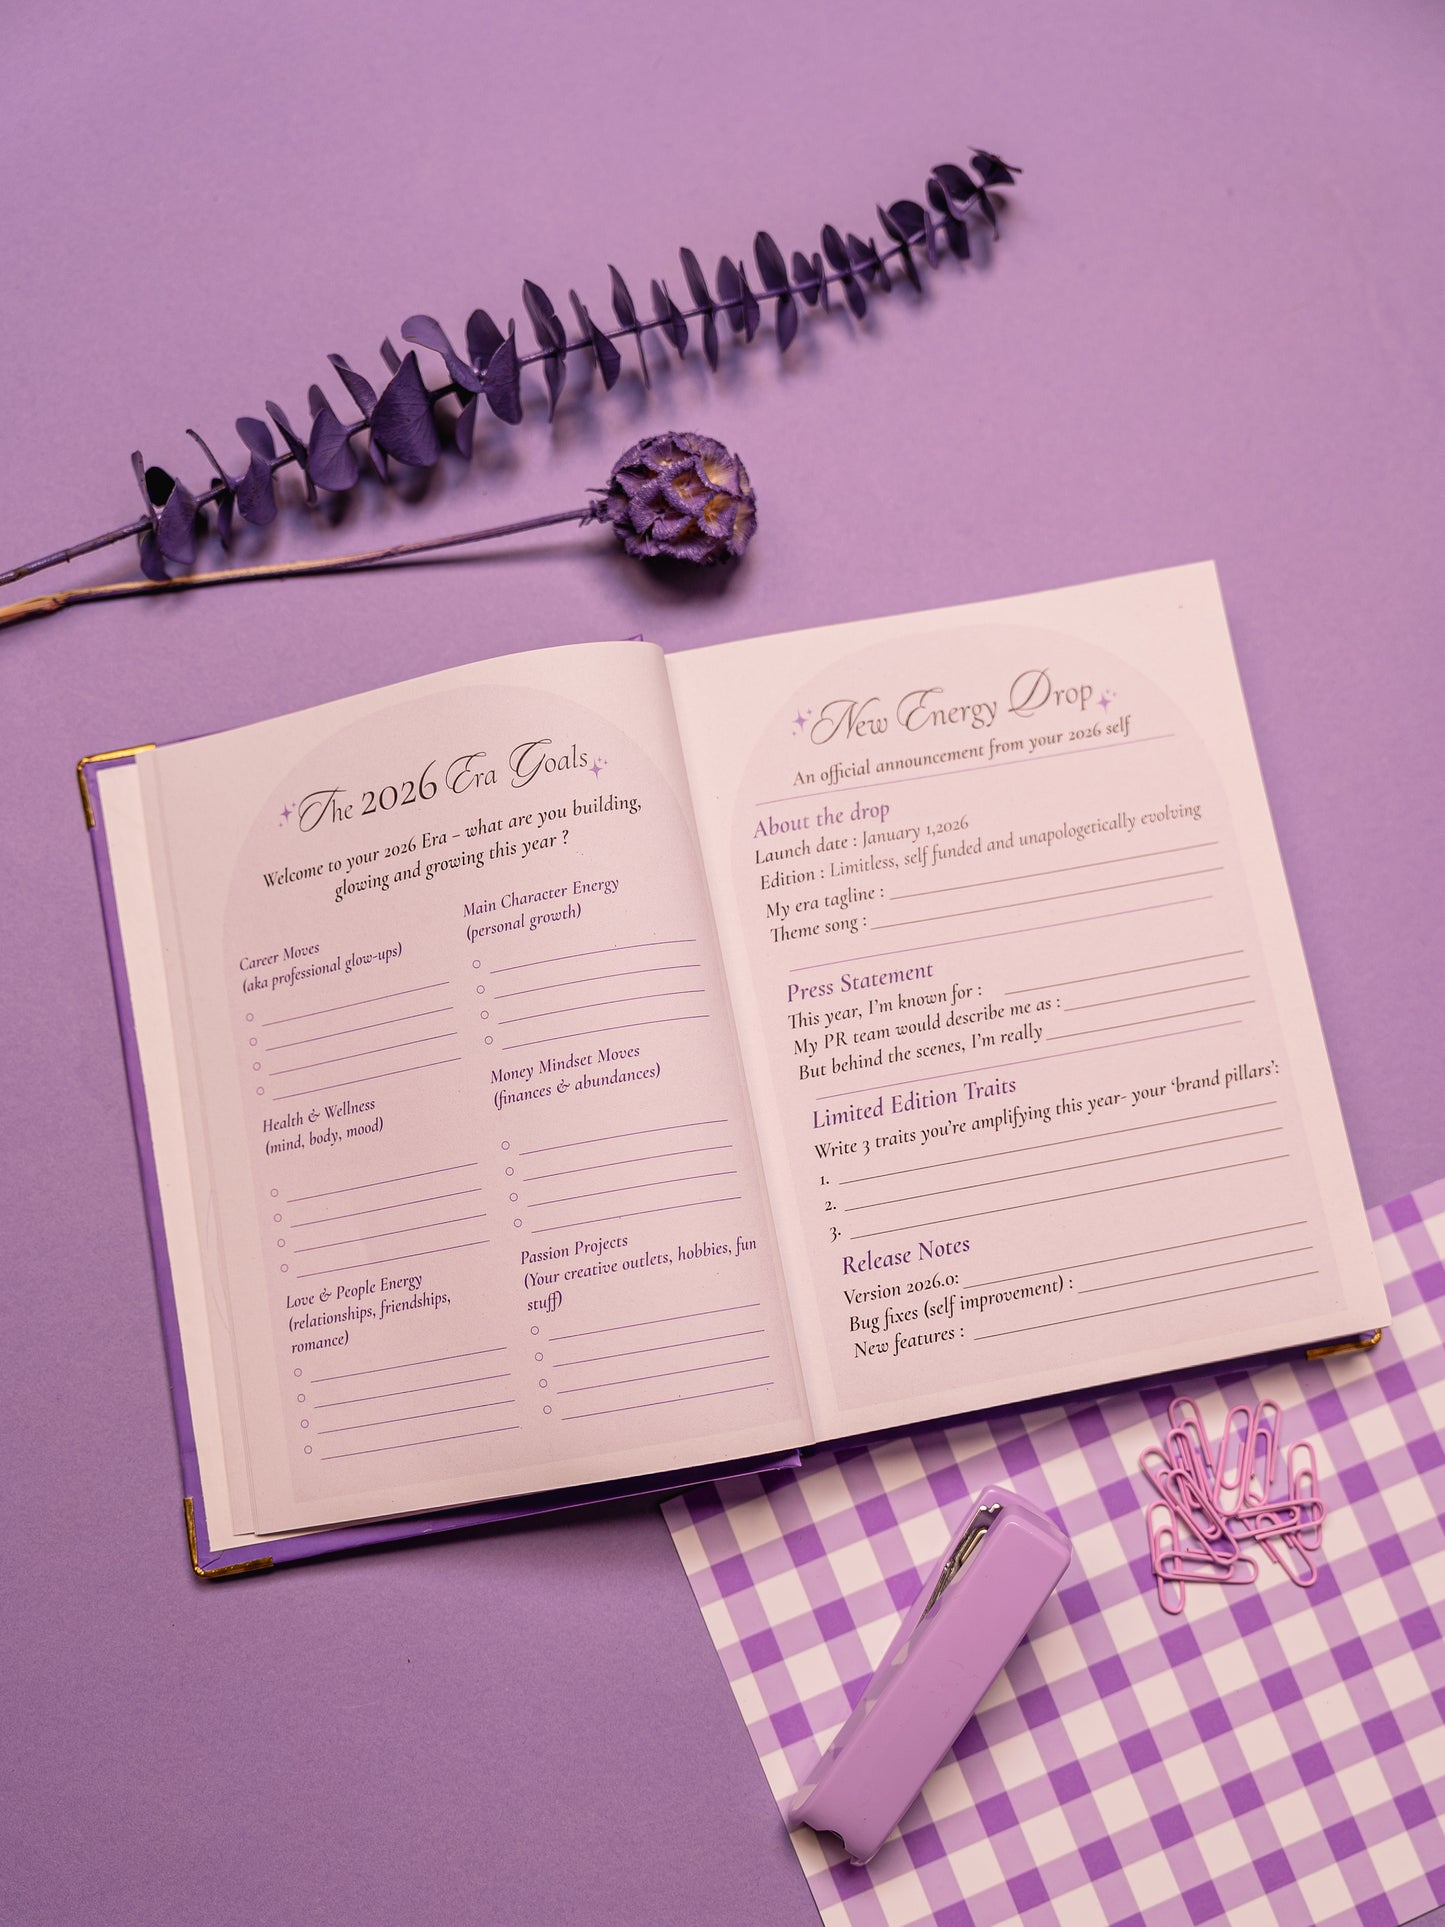 The 2026 Era Goals
Welcome to your 2026 Era – what are you building,
glowing and growing this year ?
Career Moves
(aka professional glow-ups)
Health & Wellness
(mind, body, mood)
Love & People Energy
(relationships, friendships,
romance)
Main Character Energy
(personal growth)
Money Mindset Moves
(finances & abundances)
Passion Projects
(Your creative outlets, hobbies, fun
stuff)
New Energy Drop
An official announcement from your 2026 self
About the drop
Launch date : January 1,2026
Edition : Limitless, self funded and unapologetically evolving
My era tagline :
Theme song :
Press Statement
This year, I'm known for :
My PR team would describe me as :
But behind the scenes, I'm really
Limited Edition Traits
Write 3 traits you're amplifying this year- your 'brand pillars':
1.
2.
3.
Release Notes
Version 2026.0:
Bug fixes (self improvement) :
New features :